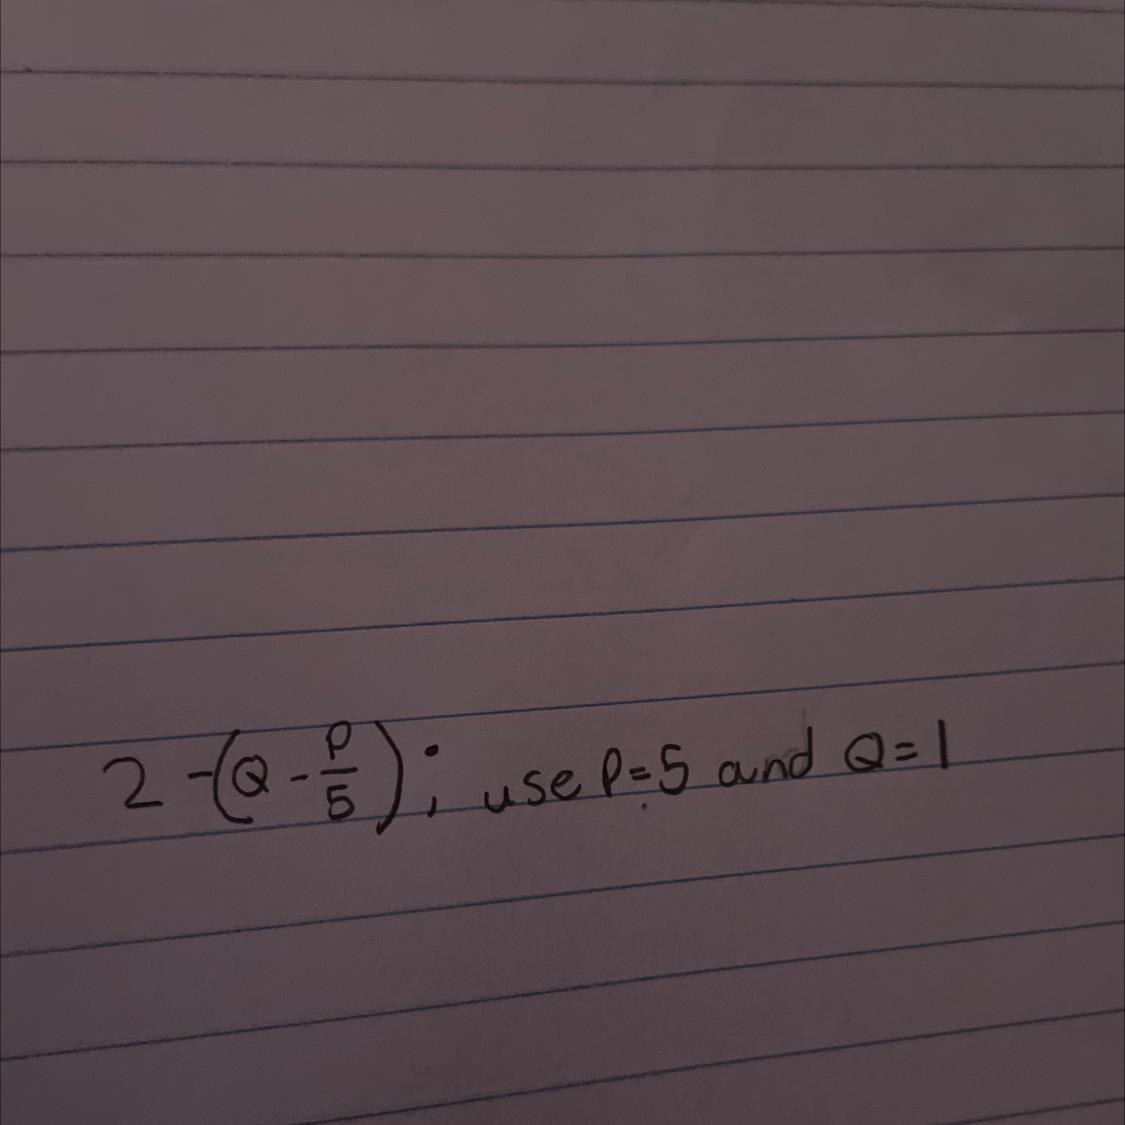 2 -(Q - P/5); use P=5 and Q=1